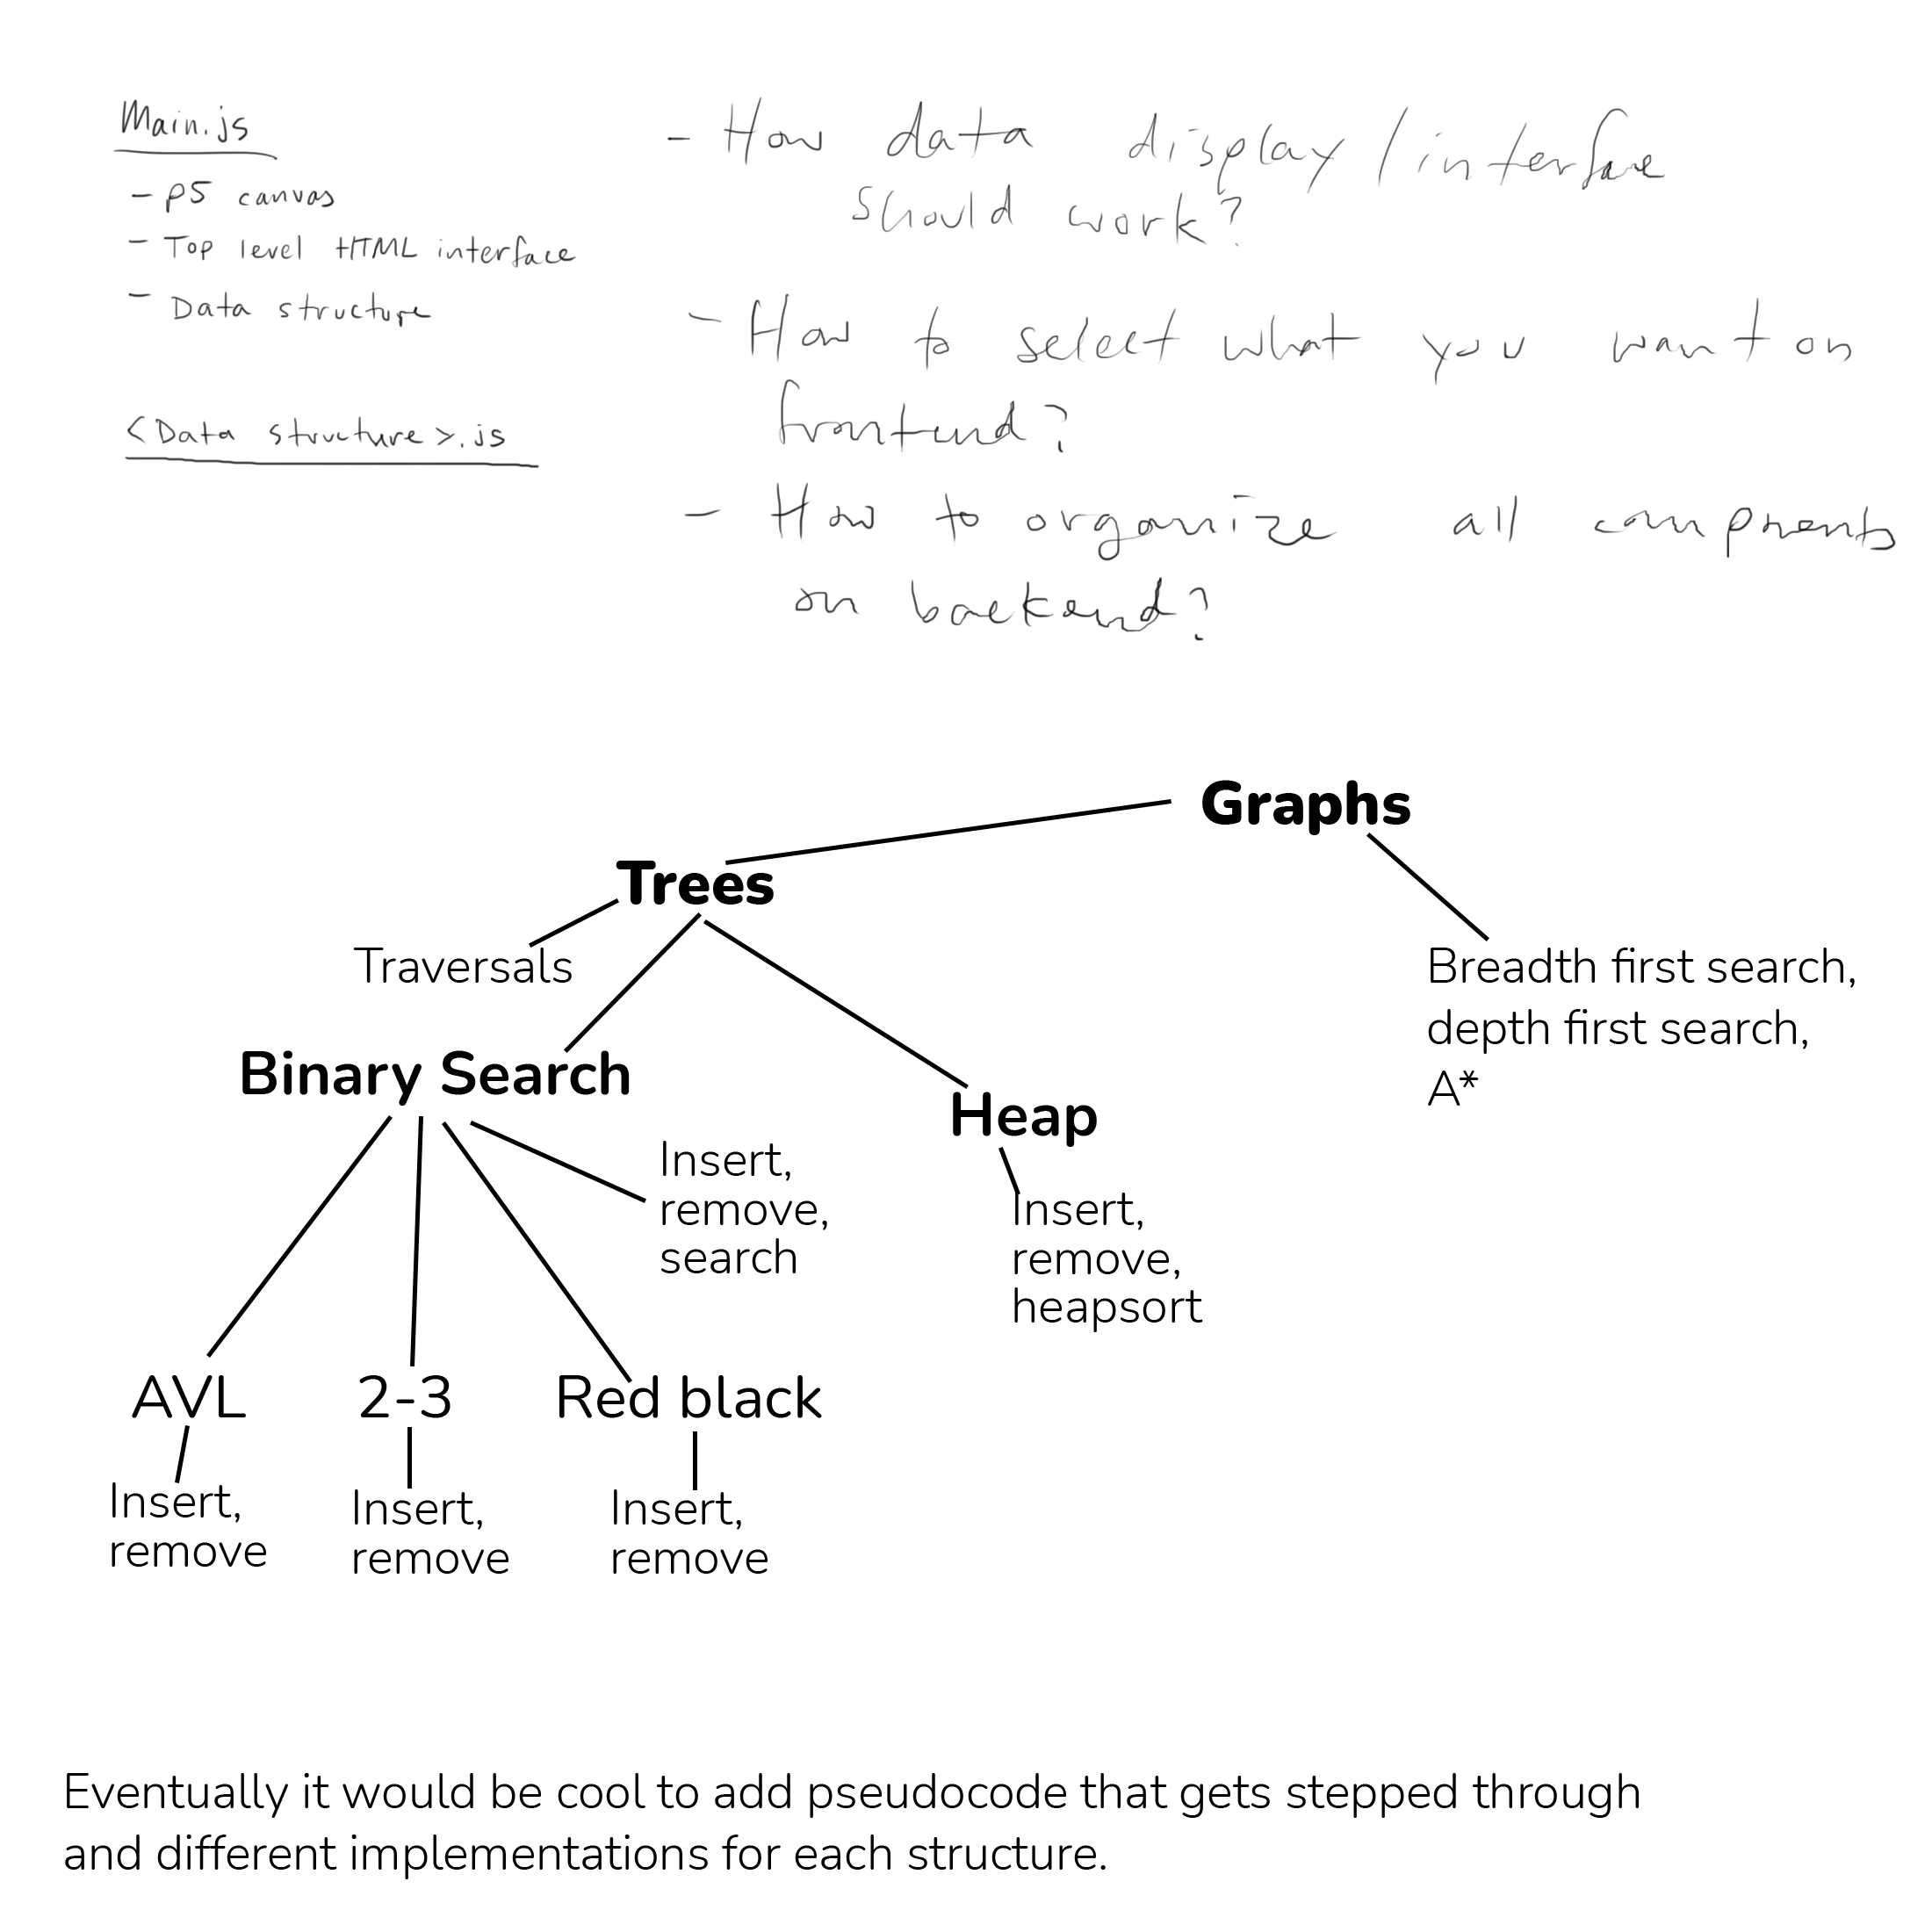 Main.js
- P5 canvas
- Top level HTML interface
- Data structure
<Data structure>.js
- How data display/interface
should work?
- How to select what you want on
frontend?
- How to organize all components
on backend?
Graphs
Trees
Traversals
Breadth first search,
depth first search,
A*
Binary Search
Heap
Insert,
remove,
search
Insert,
remove,
heapsort
AVL
2-3
Red black
Insert,
remove
Insert,
remove
Insert,
remove
Eventually it would be cool to add pseudocode that gets stepped through
and different implementations for each structure.